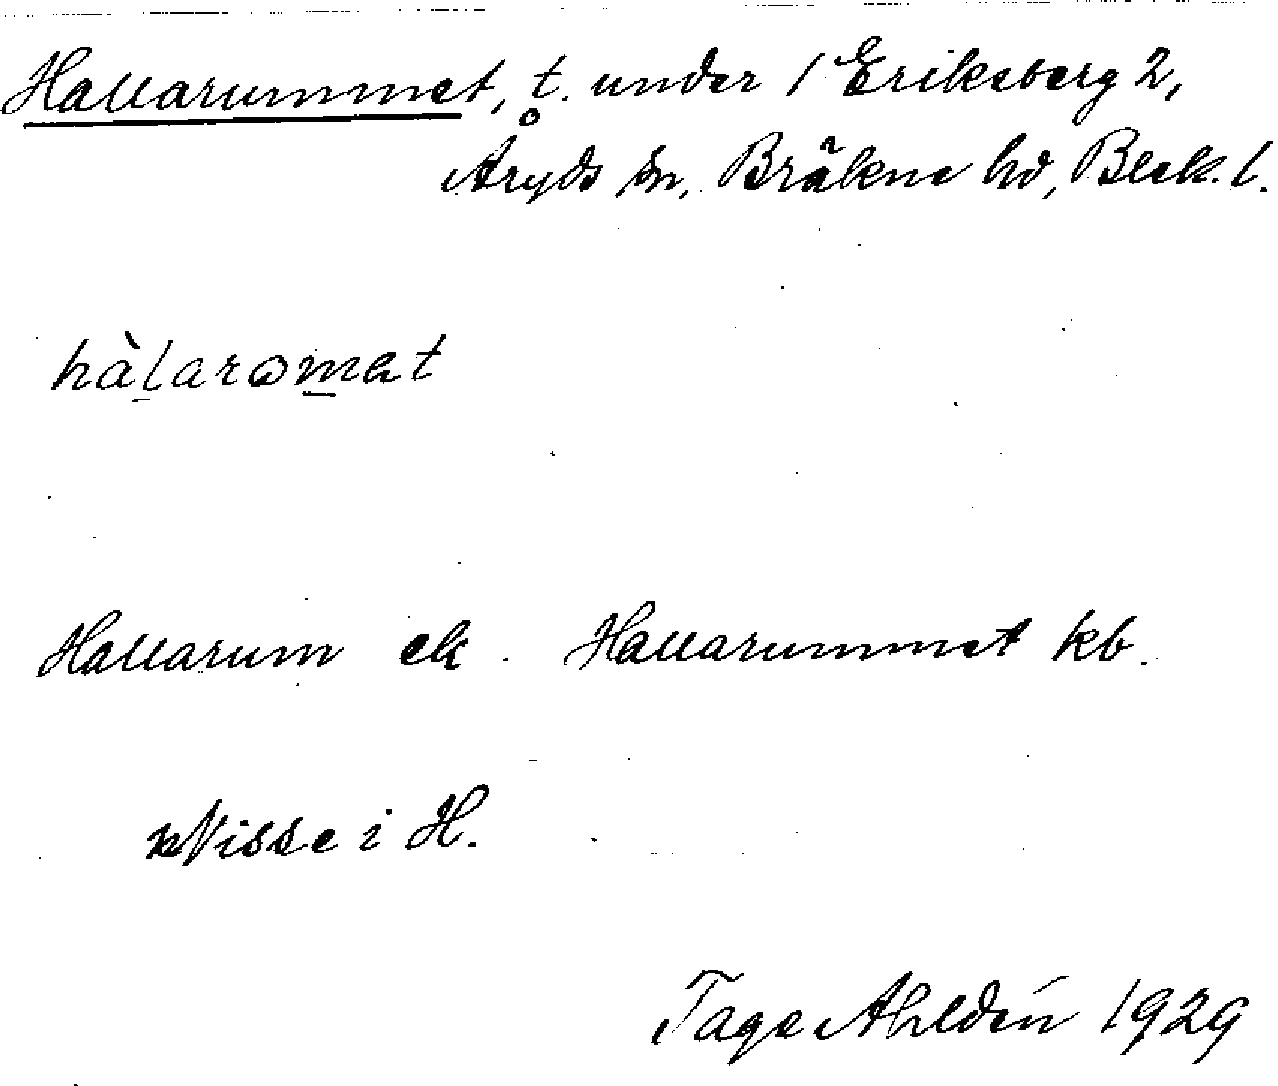 Hallarummet, t. under 1 Eriksberg 2,
Åryds sn, Bräkne hd, Blek. l.
hàl̲arωm̲et
Hallarum ek. Hallarummet kb.
Nisse i H.
Tage Ahldén 1929